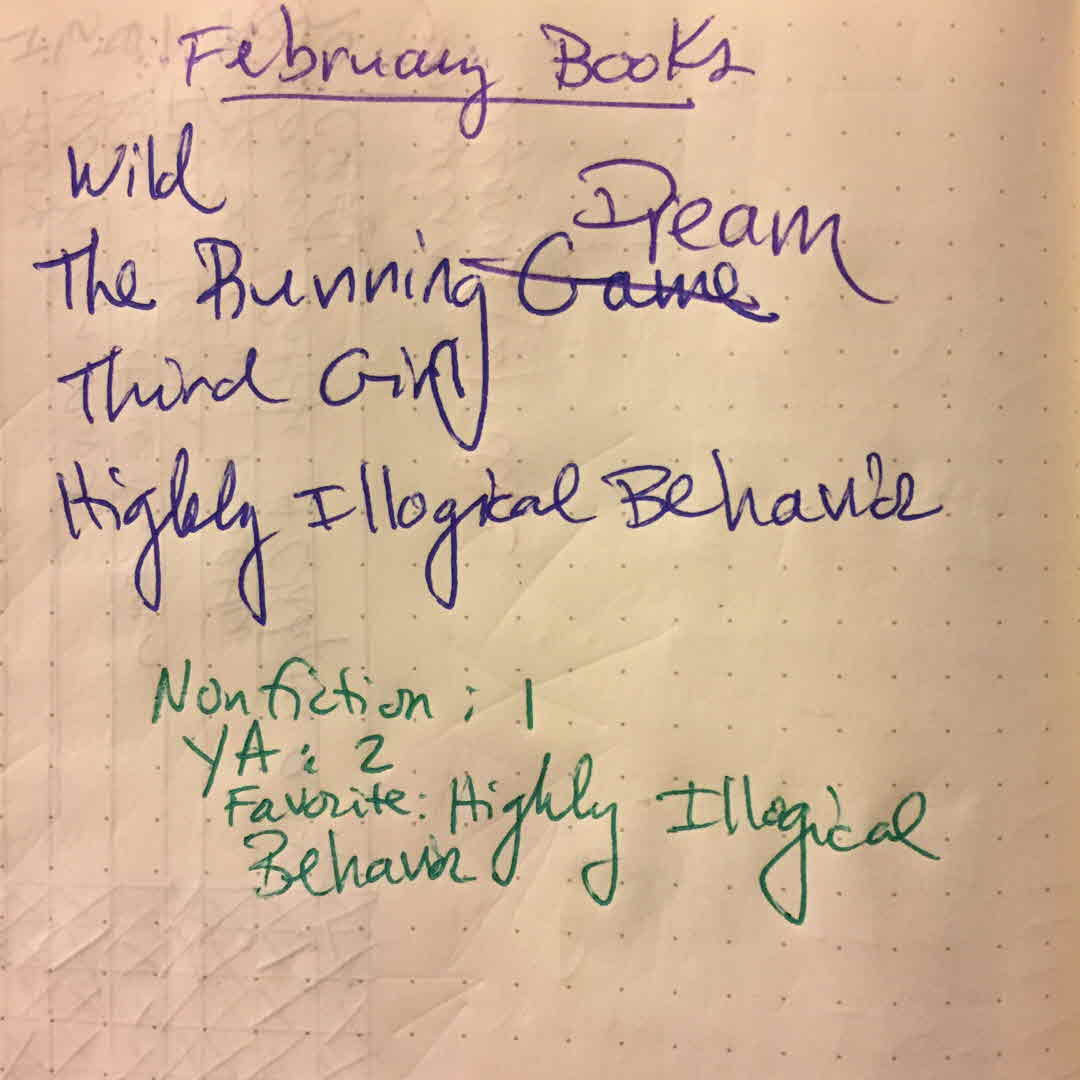 February Books
Wild
The Running Game Dream
Third Girl
Highly Illogical Behavior
Nonfiction: 1
YA: 2
Favorite: Highly Illogical
Behavior